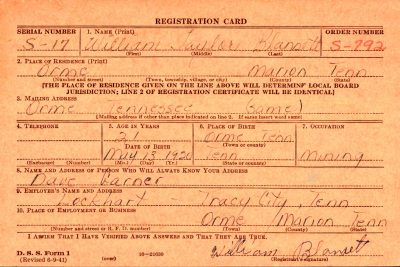 REGISTRATION CARD
SERIAL NUMBER 1. NAME (Print) ORDER NUMBER
S-17 William Taylor Blansett S-792
(First) (Middle) (Last)
2. PLACE OF RESIDENCE (Print)
Orme Marion Tenn
(Number and street) (Town, township, village, or city) (County) (State)
(THE PLACE OF RESIDENCE GIVEN ON THE LINE ABOVE WILL DETERMINE LOCAL BOARD
JURISDICTION; LINE 2 OF REGISTRATION CERTIFICATE WILL BE IDENTICAL)
3. MAILING ADDRESS
Orme Tennessee Same)
(Mailing address if other than place indicated on line 2. If same insert word same)
4. TELEPHONE 5. AGE IN YEARS 6. PLACE OF BIRTH 7. OCCUPATION
21 Orme Tenn
DATE OF BIRTH (Town or county)
May 13 1920 Tenn Mining
(Exchange) (Number) (Mo.) (Day) (Yr.) (State or country)
8. NAME AND ADDRESS OF PERSON WHO WILL ALWAYS KNOW YOUR ADDRESS
Dave Garner
9. EMPLOYER'S NAME AND ADDRESS
Lockhart Tracy City, Tenn
10. PLACE OF EMPLOYMENT OR BUSINESS
Orme Marion Tenn
(Number and street or R. F. D. number) (Town) (County) (State)
I AFFIRM THAT I HAVE VERIFIED ABOVE ANSWERS AND THAT THEY ARE TRUE.
D. S. S. Form 1 16—21630 William Blansett
(Revised 6-9-41) (over) (Registrant's signature)